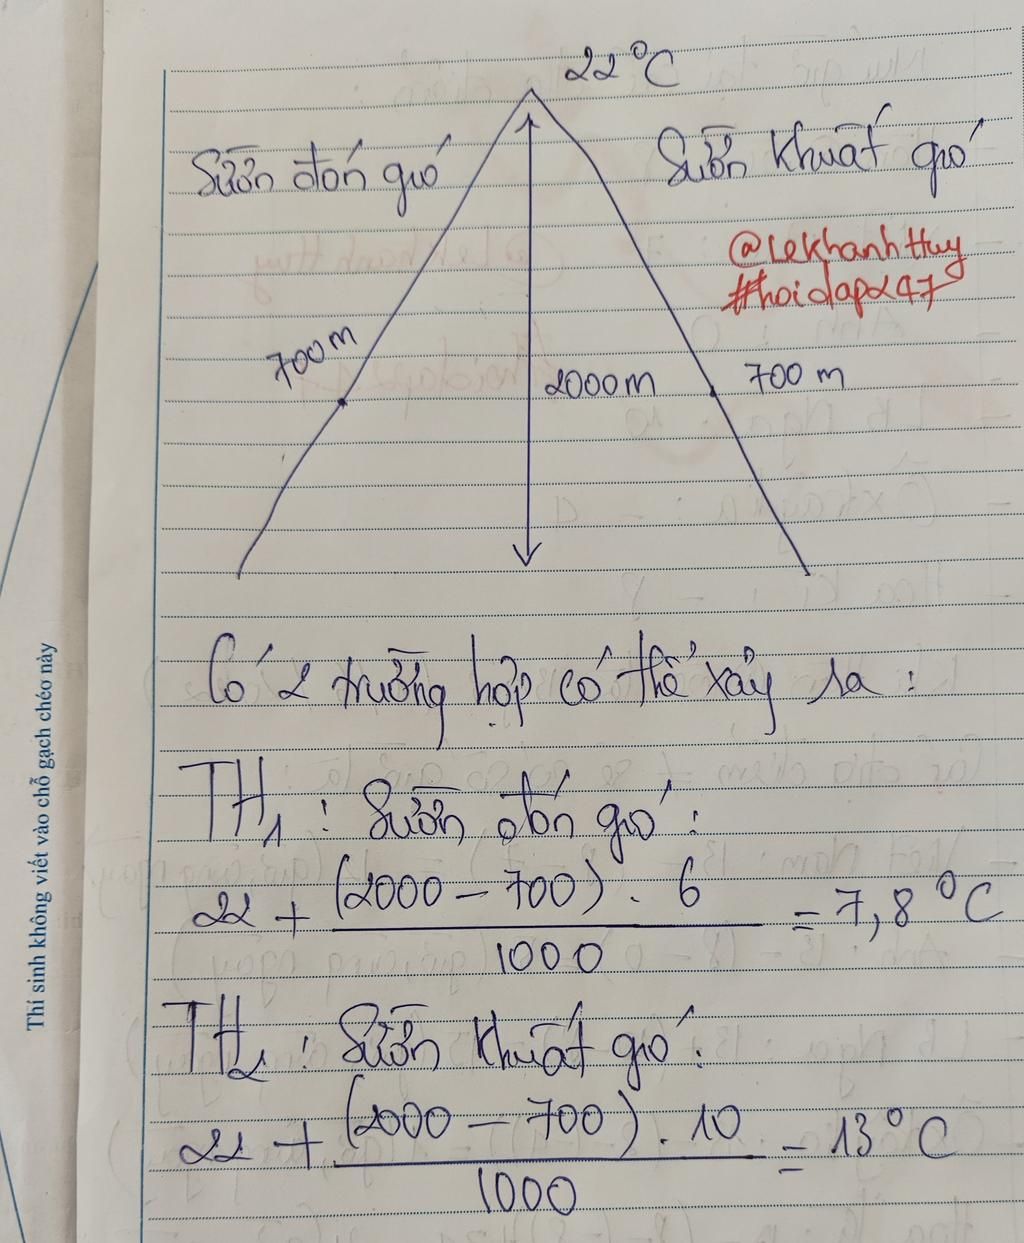 22°C
Sườn đón gió
Sườn khuất gió
@lekhanhHuy
#hoidap247
700m
2000m
700 m
Có 2 trường hợp có thể xảy ra :
TH1 : Sườn đón gió :
22 + (2000 - 700) . 6 / 1000 = 7,8 °C
TH2 : Sườn khuất gió :
22 + (2000 - 700) . 10 / 1000 = 13 °C
Thí sinh không viết vào chỗ gạch chéo này